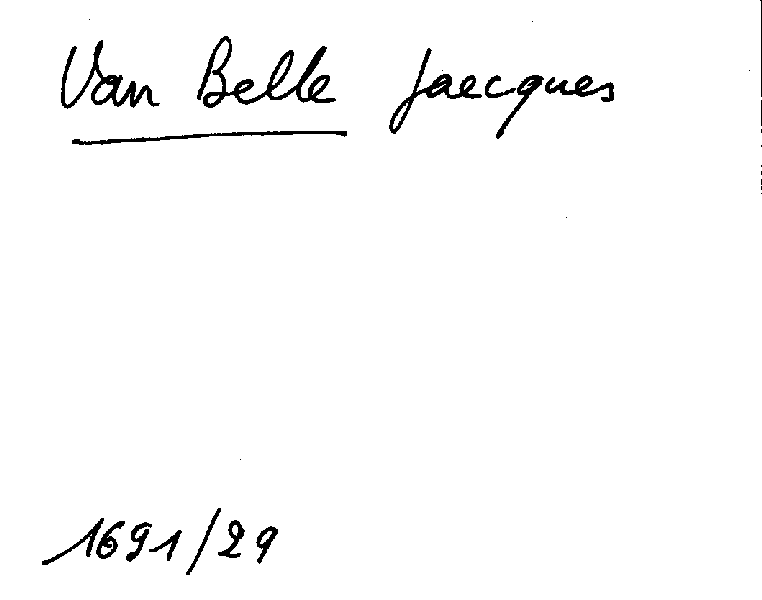 Van Belle Jaecques
1691/29